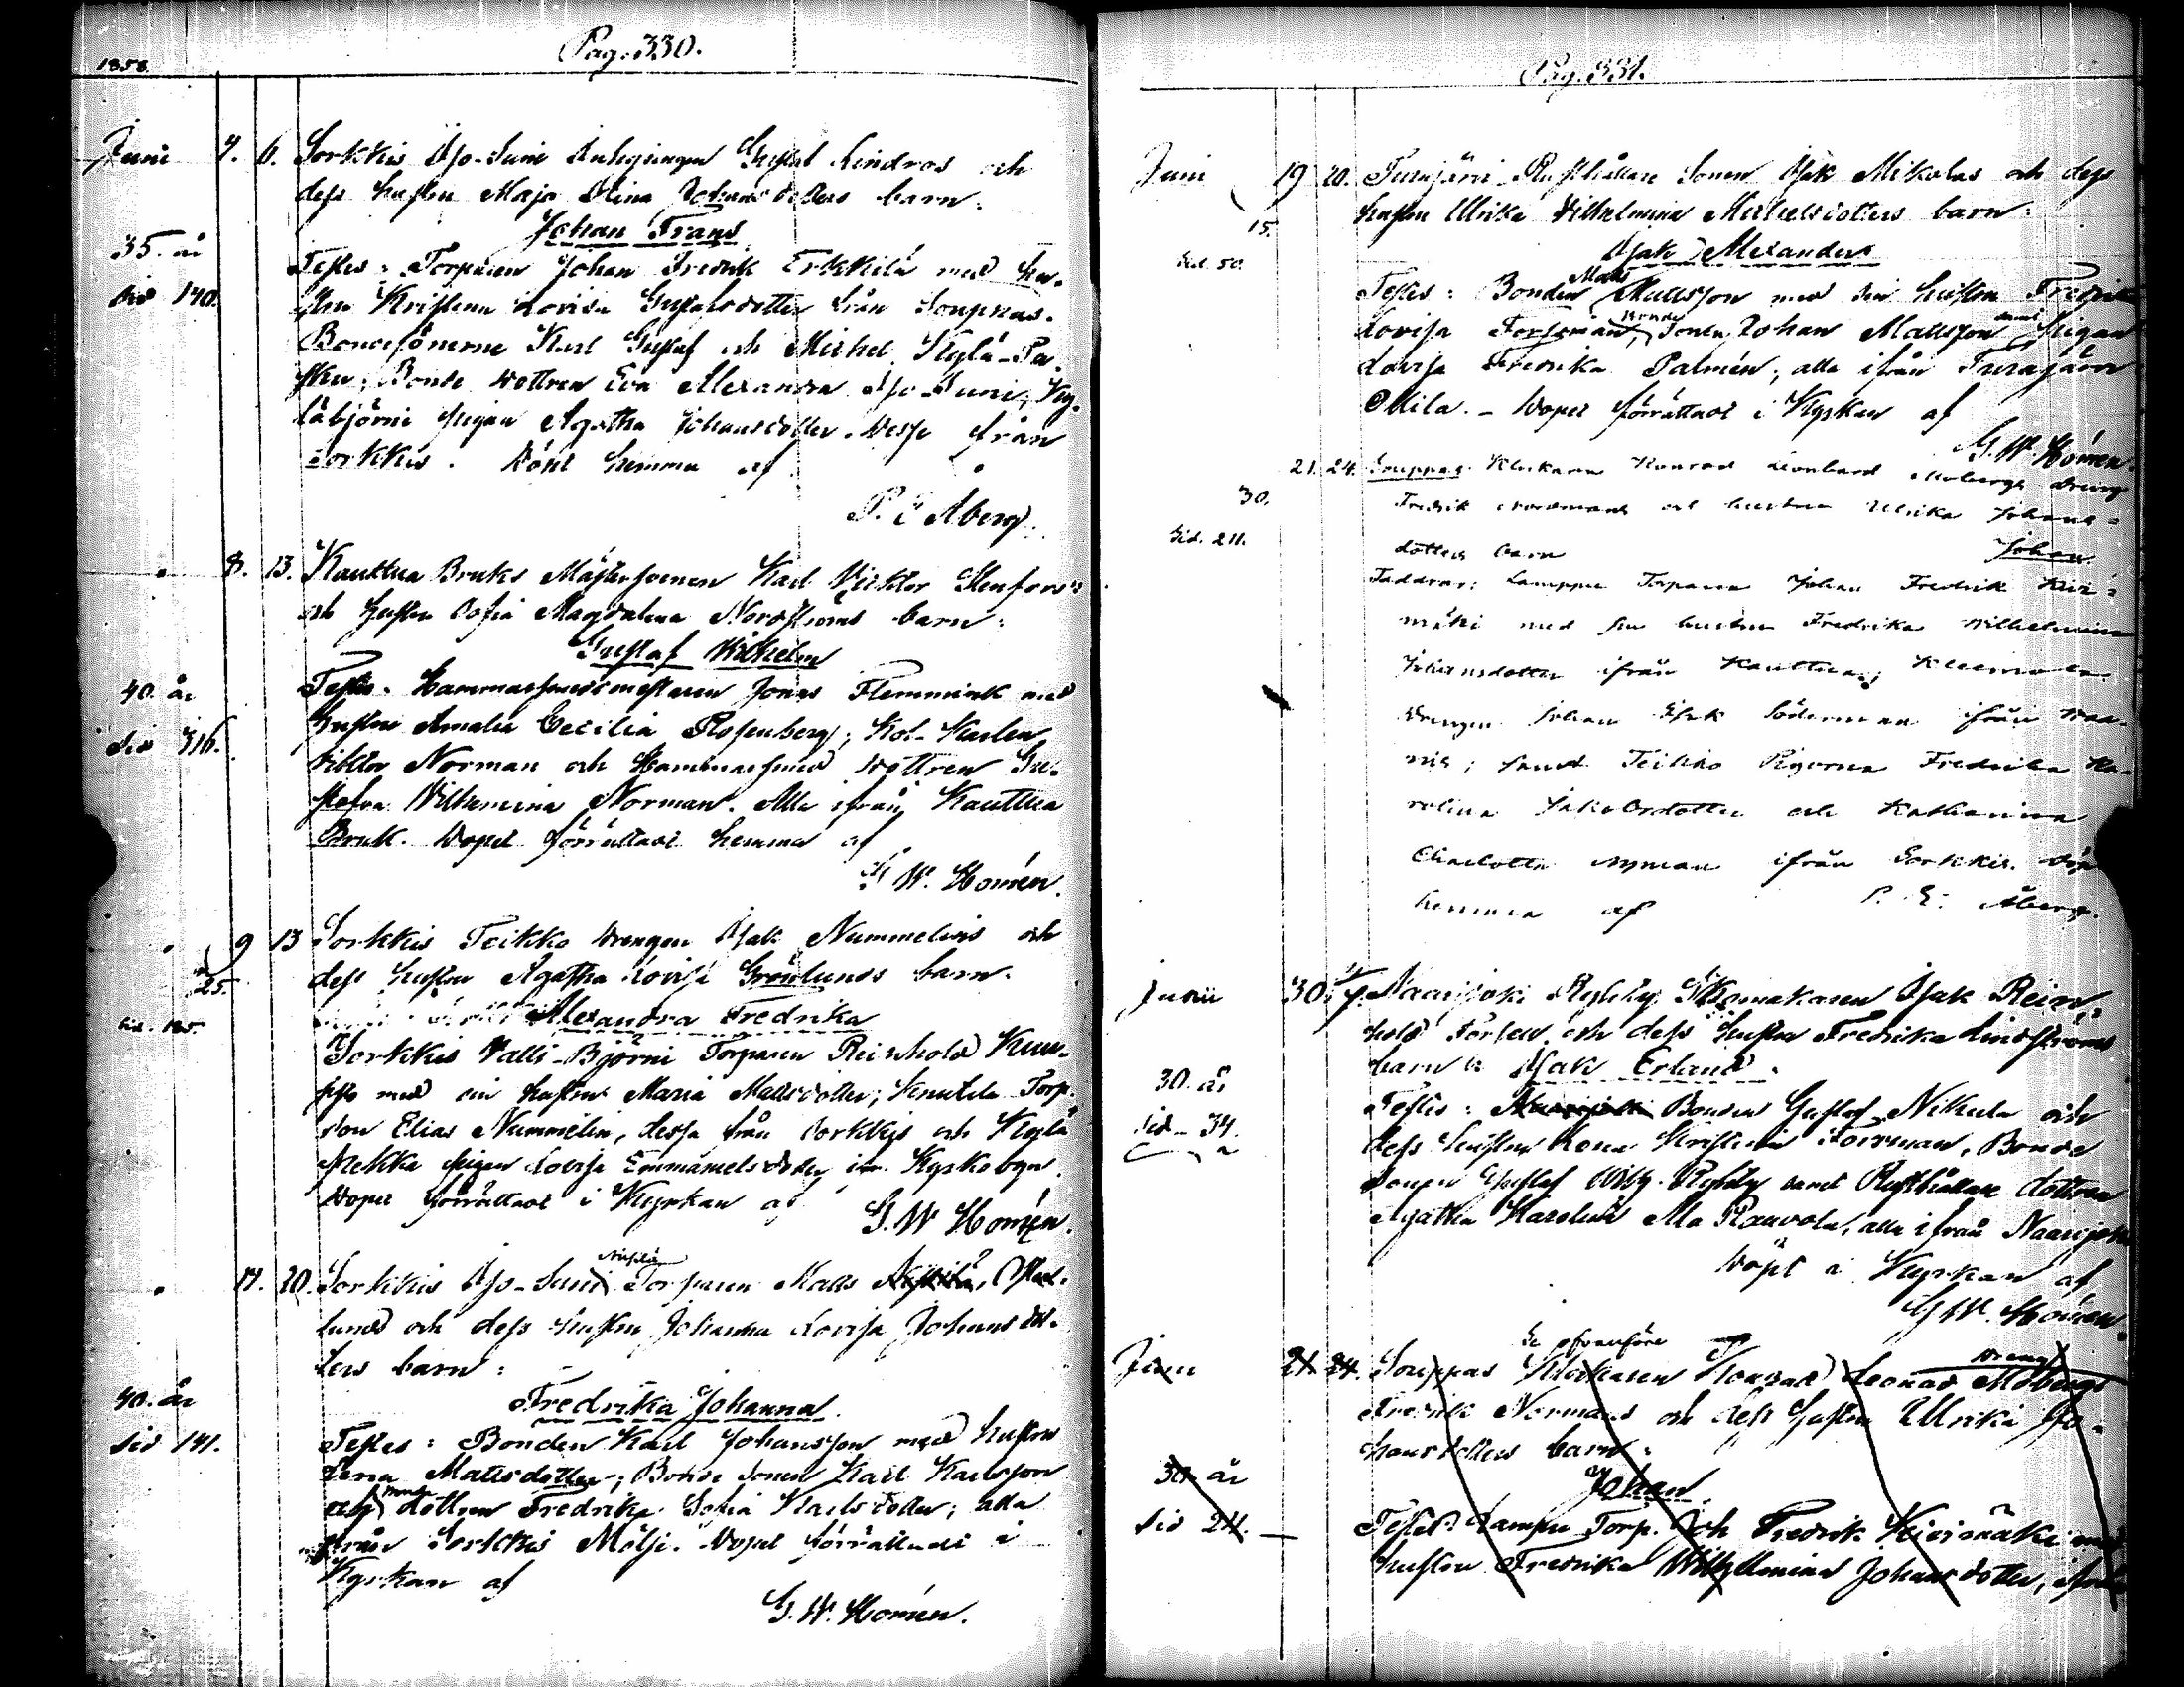 1858.
Pag. 330.
Juni 7. 6. Sorkkis Ajo-Suni Gustaf Lindros och
dess hustru Maja Stina Johansdotters barn:
Johan Frans
35. år
Sid 140.
Testes: Torparen Johan Fredrik Erkkilä med hu-
stru Kristina Lovisa Gustafsdotter från Souppas.
Bondesönerne Karl Gustaf och Michel Kylä-Pa-
Bonde dottren Eva Alexandra Ajo-Suni, Ky-
läbjörni pigan Agatha Johansdotter, desse från
Sorkkis. Döpt hemma af
P. E Åberg.
8. 13. Kauttua Bruks Karl Viktor Stenfors
och hustru Sofia Magdalena Nordströms barn:
Gustaf Wilhelm
40. år
Sid 316.
Testes. Hammarsmedsmästaren Jonas Flemmink med
hustru Amalia Cecilia Rosenberg; Kol-Karlen
Viktor Norman och Hammarsmeds dottren Gu-
stafva Wilhelmina Norman. Alla ifrån Kauttua
Bruk. Dopet förrättadt hemma af
G. W. Homén.
9 13 Sorkkis Teikko drengen Isak Nummelins och
dess hustru Agatha Lovisa Grönlunds barn.
25.
Sid. 185.
Alexandra Fredrika
Sorkkis Valli-Björni Torparen Reinhold
med sin hustru Maria Mattsdotter; Knutila Torp.
son Elias Nummelin, dessa från Sorkkis och Kylä
Pekka pigan Lovisa Emmanuelsdotter ifr. Kyrkobyn.
Dopet förrättadt i Kyrkan af
G. W Homén.
17. 20. Sorkkis Ajo-Suni Torparen Matts
lunds och dess hustru Johanna Lovisa Johansdot-
ters barn:
Fredrika Johanna.
40. år
Sid 141.
Testes: Bonden Karl Johansson med hustru
Lena Mattsdotter; Bonde Sonen Karl Karlsson
och dottren Fredrika Sofia Karlsdotter; alla
från Sorkkis Möljé. Dopet förrättadt i
Kyrkan af
G. W. Homén.
Pag. 331.
Juni 19 20. Turajärvi Rusthållare Sonen Isak Mikolas och dess
hustru Ulrika Vilhelmina Michelsdotters barn:
15.
Sid. 50.
Isak Alexander
Testes: Bonden Matts Mattsson med sin hustru Fredrika
Lovisa Forsman, Bonde Sonen Johan Mattsson samt Pigan
Lovisa Fredrika Palmén; alla ifrån Turajärvi
Mila. - Dopet förrättadt i Kyrkan af
G. W. Homén.
21. 24. Souppas Klockaren Konrad Leonhard Mobergs dreng
30.
Fredrik Normans och hustrun Ulrika Johans-
Sid. 211.
dotters barn Johan.
Faddrar: Lamppu Torparen Johan Fredrik Kivi-
mäki med sin hustru Fredrika Wilhelmina
Johansdotter ifrån Kauttua;
Drengen Johan Isak Söderman ifrån
samt Teikko Pigorna Fredrika Ka-
rolina Jakobsdotter och Katharina
Charlotta Nyman ifrån Sorkkis. Döpt
hemma af P. E. Åberg.
Junii 30. 4/7. Naarijoki Ryhty Skomakaren Isak Rein-
hold Forsell och dess hustru Fredrika Lindströms
barn: Isak Erland.
30. år
Sid - 34.
Testes: Bonden Gustaf Nikula och
dess hustru Lena Kristina Forsman, Bonde
Sonen Gustaf Ryhty samt Rusthållare dottren
Agatha Karolina Ala Rauvola, alla ifrån Naarijoki
Döpt i Kyrkan af
G. W. Homén.
Se ofvanföre
Juni 21 24. Souppas Klockaren Konrad Leonard Mobergs dreng
Fredrik Normans och dess hustru Ulrika Jo-
hansdotters barn:
Johan
30 år
Sid 211.
Testes: Lampu Torp. Joh Fredrik Kivimäki med
hustru Fredrika Wilhelmina Johansdotter,